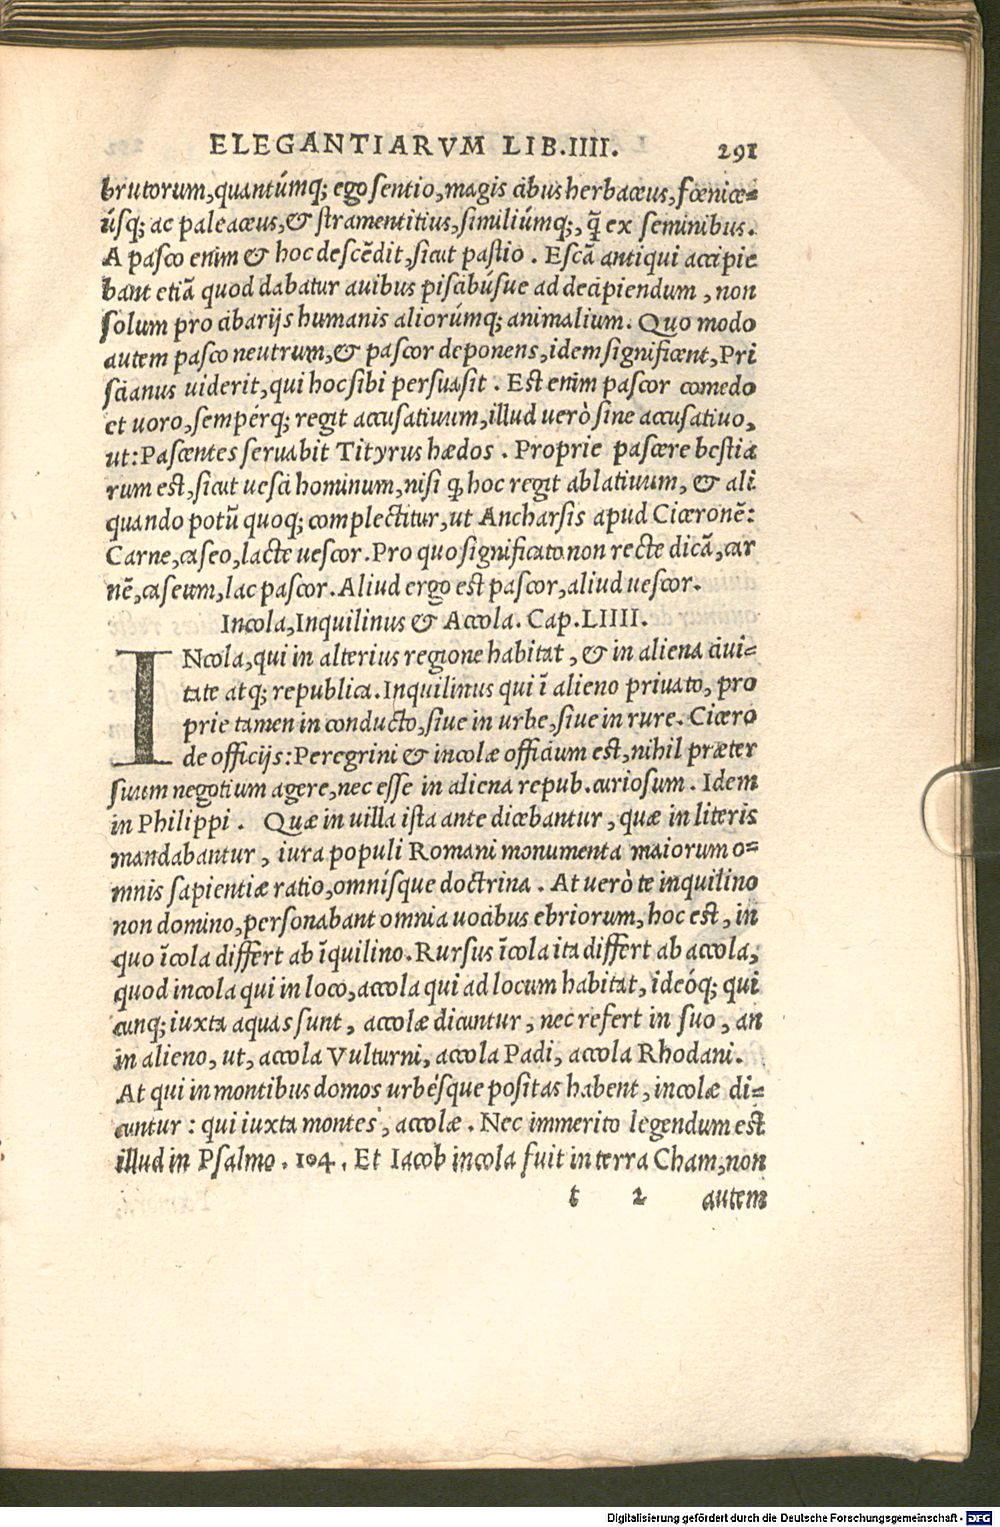 ELEGANTIARVM LIB.IIII. 291
brutorum,quantúmq; ego sentio,magis cibus herbaceus,fœnice-
úsq; ac paleaceus,& stramentitius,similiúmq;, q̃ ex seminibus.
A pasco enim & hoc descẽdit,sicut pastio . Escã antiqui accipie
bant etiã quod dabatur auibus piscibúsue ad decipiendum , non
solum pro cibarijs humanis aliorúmq; animalium. Quo modo
autem pasco neutrum,& pascor deponens,idem significent,Pri
scianus uiderit,qui hoc sibi persuasit . Est enim pascor comedo
et uoro,sempérq; regit accusatiuum,illud uerò sine accusatiuo,
ut:Pascentes seruabit Tityrus hædos . Proprie pascere bestia
rum est,sicut uesci hominum,nisi ꝙ hoc regit ablatiuum, & ali
quando potũ quoq; complectitur,ut Ancharsis apud Ciceronẽ:
Carne,caseo,lacte uescor.Pro quo significato non recte dicã,car
nẽ,caseum,lac pascor.Aliud ergo est pascor,aliud uescor.
Incola,Inquilinus & Accola. Cap.LIIII.
INcola,qui in alterius regione habitat , & in aliena ciui-
tate atq; republica.Inquilinus qui ĩ alieno priuato, pro
prie tamen in conducto,siue in urbe,siue in rure. Cicero
de officijs:Peregrini & incolæ officium est,nihil præter
suum negotium agere,nec esse in aliena repub.curiosum . Idem
in Philippi . Quæ in uilla ista ante dicebantur , quæ in literis
mandabantur , iura populi Romani monumenta maiorum o-
mnis sapientiæ ratio,omnísque doctrina . At uerò te inquilino
non domino,personabant omnia uocibus ebriorum,hoc est, in
quo ĩcola differt ab ĩquilino.Rursus ĩcola ita differt ab accola,
quod incola qui in loco,accola qui ad locum habitat, ideóq; qui
cunq; iuxta aquas sunt , accolæ dicuntur , nec refert in suo , an
in alieno, ut, accola Vulturni, accola Padi, accola Rhodani.
At qui in montibus domos urbésque positas habent, incolæ di-
cuntur : qui iuxta montes , accolæ . Nec immerito legendum est
illud in Psalmo . 104 . Et Iacob incola fuit in terra Cham,non
t 2 autem
Digitalisierung gefördert durch die Deutsche Forschungsgemeinschaft - DFG